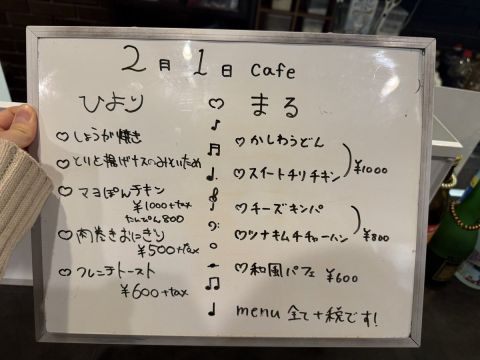 2月1日 cafe
ひより ♡ まる
♡しょうが焼き
♡とりと揚げナスのみぞいため
♡マヨぽんチキン
¥1000+tax
たんぴん800
♡肉巻きおにぎり
¥500+tax
♡フレンチトースト
¥600+tax
♡かしわうどん
♡スイートチリチキン
¥1000
♡チーズキンパ
♡ツナキムチチャーハン
¥800
♡和風パフェ ¥600
menu 全て+税です!